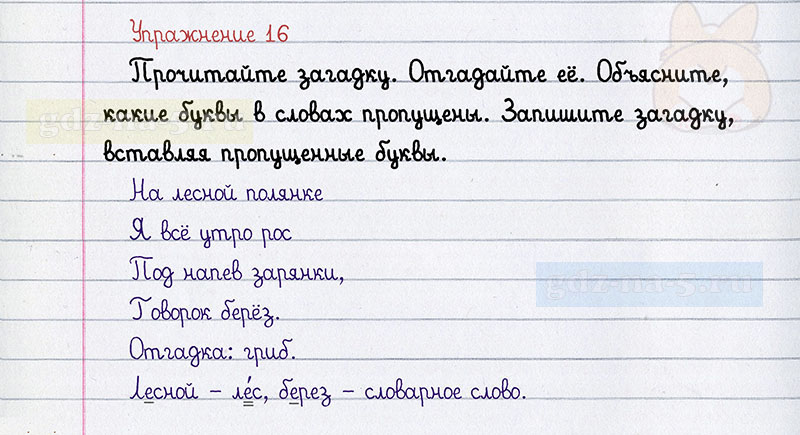 Упражнение 16
Прочитайте загадку. Отгадайте её. Объясните,
какие буквы в словах пропущены. Запишите загадку,
вставляя пропущенные буквы.
На лесной полянке
Я всё утро рос
Под напев зарянки,
Говорок берёз.
Отгадка: гриб.
Лесной – ле́с, берез – словарное слово.
gdz-na-5.ru
gdz-na-5.ru